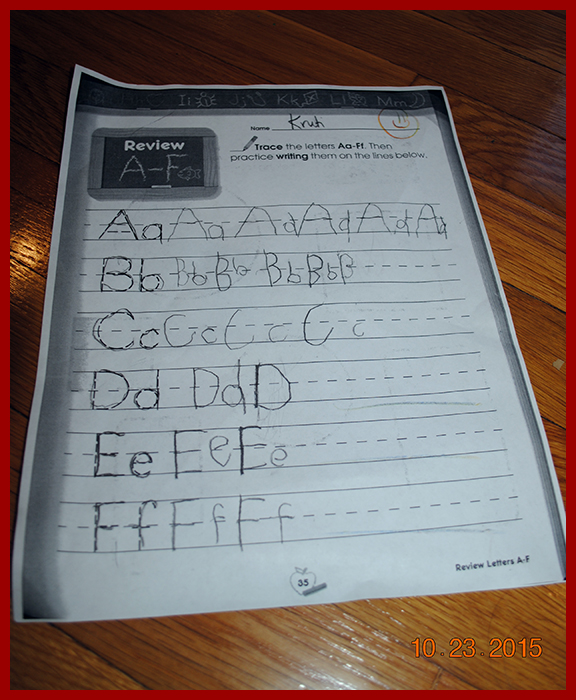 Ii Jj Kk Ll Mm
Name Kruh
Review
A-F
Trace the letters Aa-Ff. Then
practice writing them on the lines below.
Aa Aa Ad Ad Ad Aa
Bb Bb Bb Bb BbB
Cc Cc C c C c
Dd Dd D
Ee Ee Ee
Ff Ff Ff
35
Review Letters A-F
10.23.2015